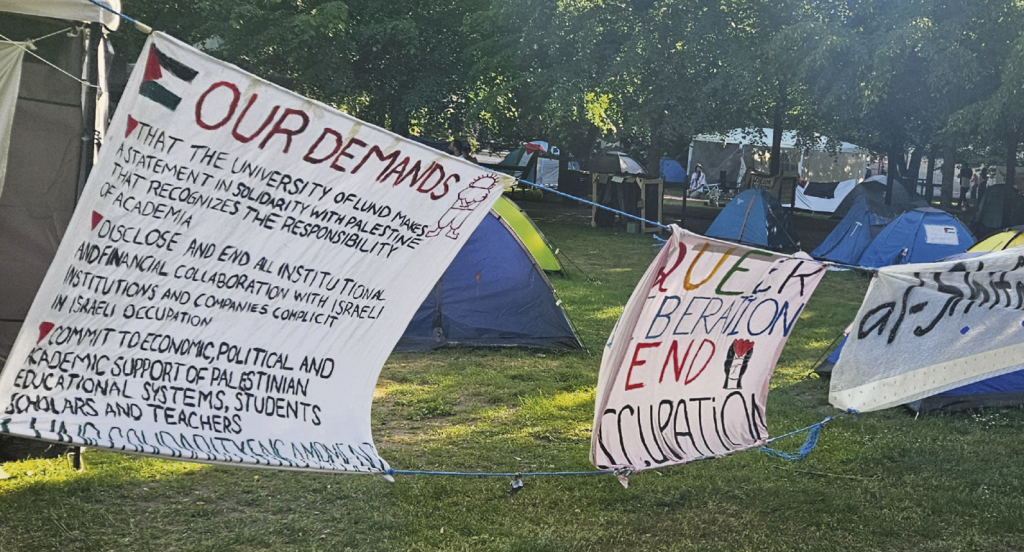 OUR DEMANDS
THAT THE UNIVERSITY OF LUND MAKES
A STATEMENT IN SOLIDARITY WITH PALESTINE
THAT RECOGNIZES THE RESPONSIBILITY
OF ACADEMIA
DISCLOSE AND END ALL INSTITUTIONAL
AND FINANCIAL COLLABORATION WITH ISRAELI
INSTITUTIONS AND COMPANIES COMPLICIT
IN ISRAELI OCCUPATION
COMMIT TO ECONOMIC, POLITICAL AND
ACADEMIC SUPPORT OF PALESTINIAN
EDUCATIONAL SYSTEMS, STUDENTS
SCHOLARS AND TEACHERS
LUND SOLIDARITY ENCAMPMENT
QUEER
LIBERATION
END
OCCUPATION